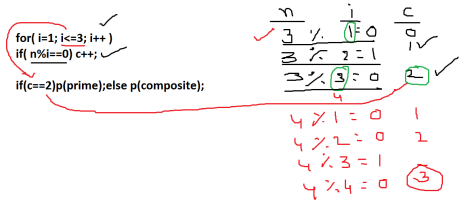 for( i=1; i<=3; i++ )
if( n%i==0) c++;
if(c==2)p(prime);else p(composite);
n i c
3 % 1=0 0
1
3 % 2=1
3 % 3=0 2
4
4 % 1=0 1
4 % 2=0 2
4 % 3=1 -
4 % 4=0 3